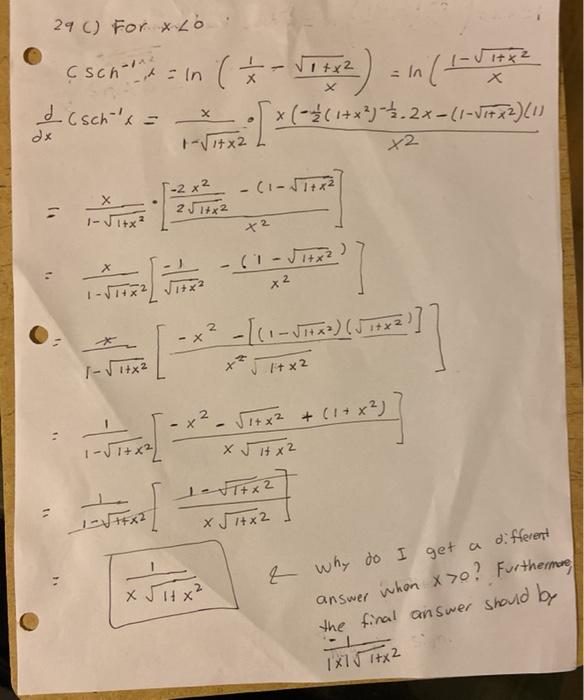 29 c) For x<0
csch⁻¹x = ln ( 1/x - √(1+x²)/x ) = ln ( (1-√(1+x²))/x )
d/dx csch⁻¹x = x/(1-√(1+x²)) · [ (x(-½(1+x²)^(-½)·2x-(1-√(1+x²))(1))/x² ]
= x/(1-√(1+x²)) · [ (-2x²/(2√(1+x²)) - (1-√(1+x²))/x² ]
= x/(1-√(1+x²)) [ -1/√(1+x²) - (1-√(1+x²))/x² ]
= x/(1-√(1+x²)) [ (-x² -[(1-√(1+x²))(√(1+x²))])/(x²√(1+x²)) ]
= 1/(1-√(1+x²)) [ (-x² - √(1+x²) + (1+x²))/(x√(1+x²)) ]
= 1/(1-√(1+x²)) [ (1-√(1+x²))/(x√(1+x²)) ]
= 1/(x√(1+x²))
Why do I get a different
answer when x>0? Furthermore,
the final answer should by
-1/(|x|√(1+x²))